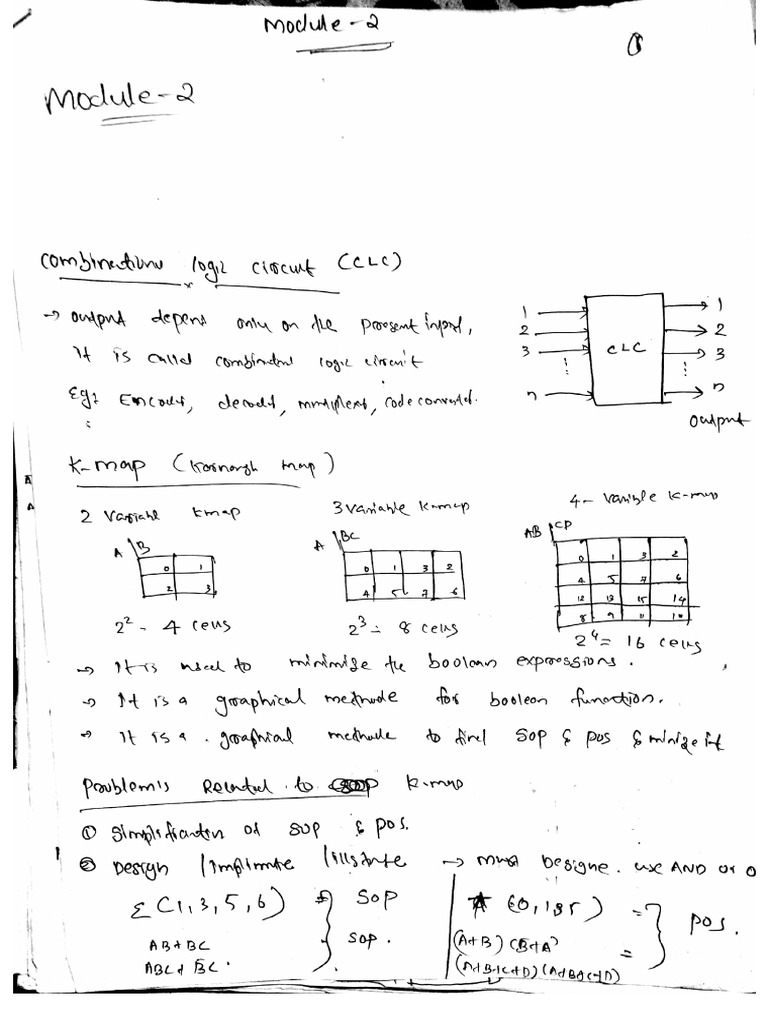 Module-2
①
Module-2
Combinational logic circuit (CLC)
→ output depend only on the present input,
It is called combinational logic circuit
Eg: Encoder, decoder, multiplexer, code converter.
1 2 3 n
CLC
1 2 3 n
output
K-map (Karnaugh map)
2 Variable kmap
3 Variable K-map
4- Variable K-map
A B
0 1
2 3
A BC
0 1 3 2
4 5 7 6
AB CD
0 1 3 2
4 5 7 6
12 13 15 14
8 9 11 10
2² - 4 cells
2³ = 8 cells
2⁴ = 16 cells
→ It is used to minimize the boolean expressions.
→ It is a graphical methode for boolean function.
→ It is a graphial methode to find SOP & POS & minize it
Problem's Related to K-map
① Simplification of SOP & POS.
② Design / Implimte / illstrate → must designe. use AND or O
Σ (1, 3, 5, 6) = SOP
AB+BC
SOP.
(0, 1, 3, 5) =
(A+B) (B+A)
(A+B+C+D) (A+B+C+D) =
POS.